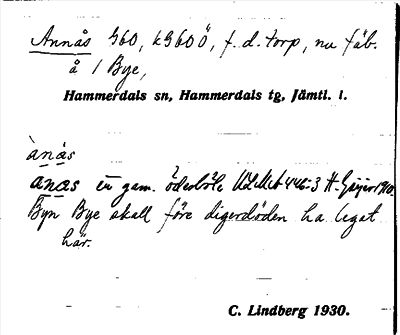 Annås 360, k3600, f. d. torp, nu fäb.
å 1 Bye,
Hammerdals sn, Hammerdals tg, Jämtl. l.
ànàs
anas en gam. ödesböle ULMA 446:3 H. Geijer 1910.
Byn Bye skall före digerdöden ha legat
här.
C. Lindberg 1930.